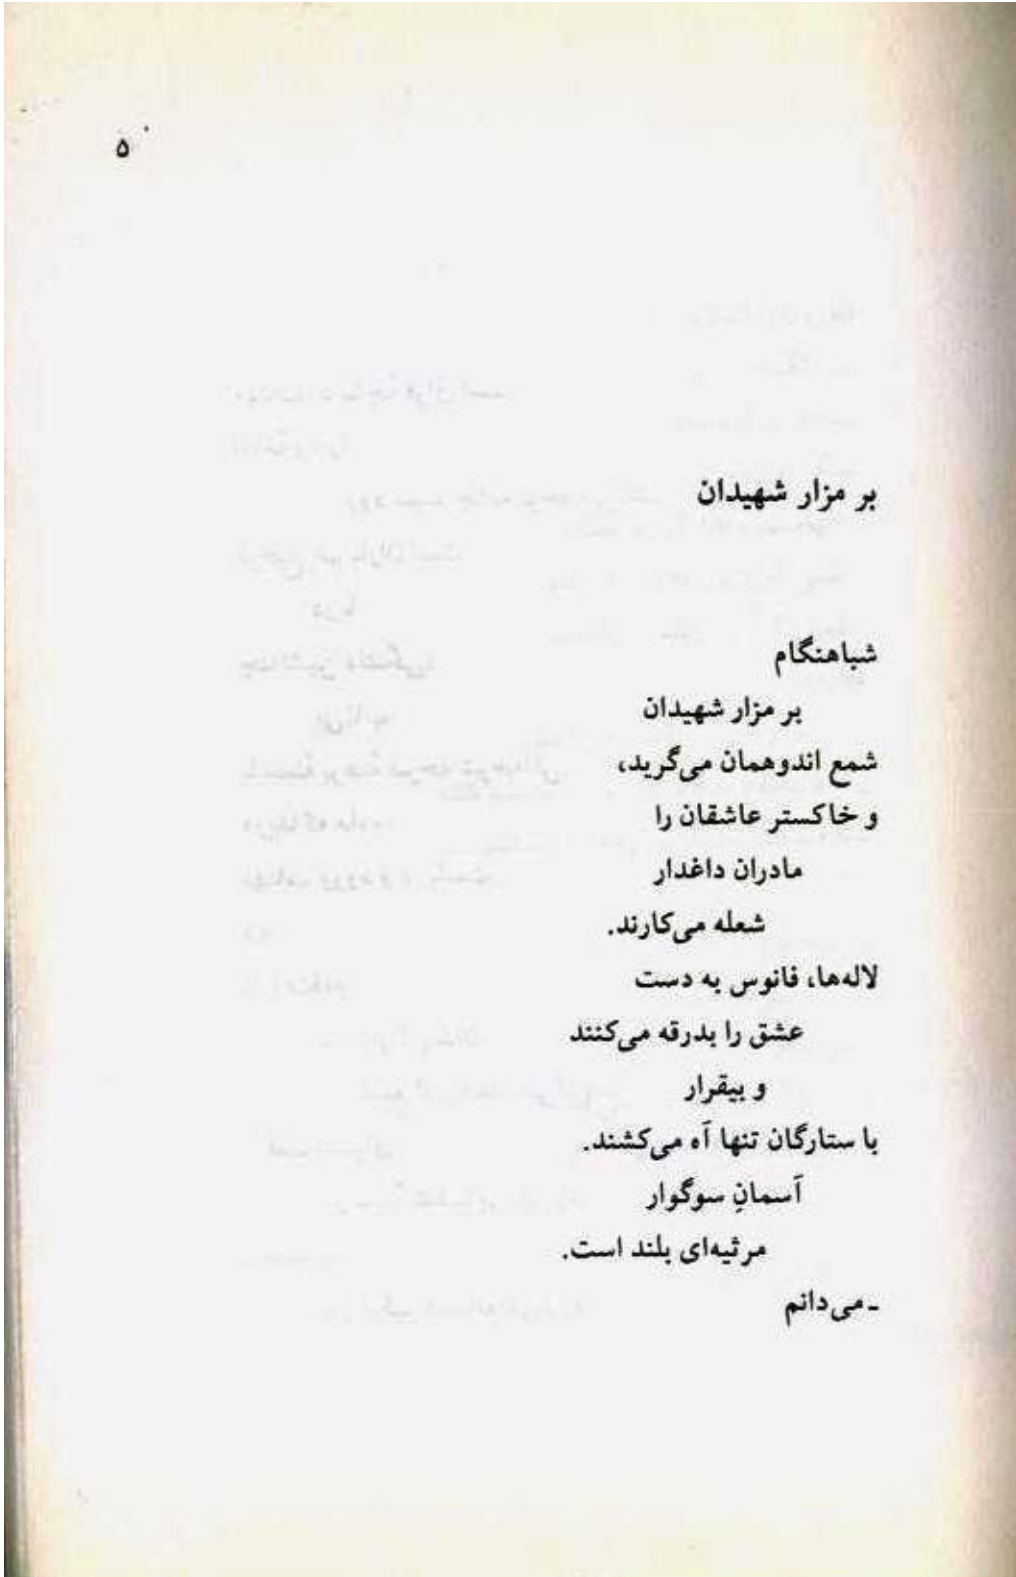 ۵
بر مزار شهیدان
شباهنگام
بر مزار شهیدان
شمع اندوهمان می‌گرید،
و خاکستر عاشقان را
مادران داغدار
شعله می‌کارند.
لاله‌ها، فانوس به دست
عشق را بدرقه می‌کنند
و بیقرار
با ستارگان تنها آه می‌کشند.
آسمانِ سوگوار
مرثیه‌ای بلند است.
ـ می‌دانم